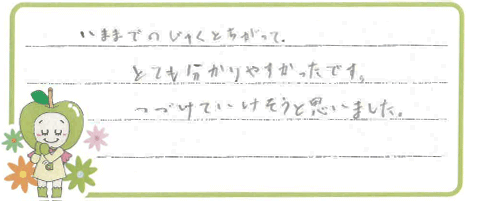 いままでのじゅくとちがって、
とても分かりやすかったです。
つづけていけそうと思いました。